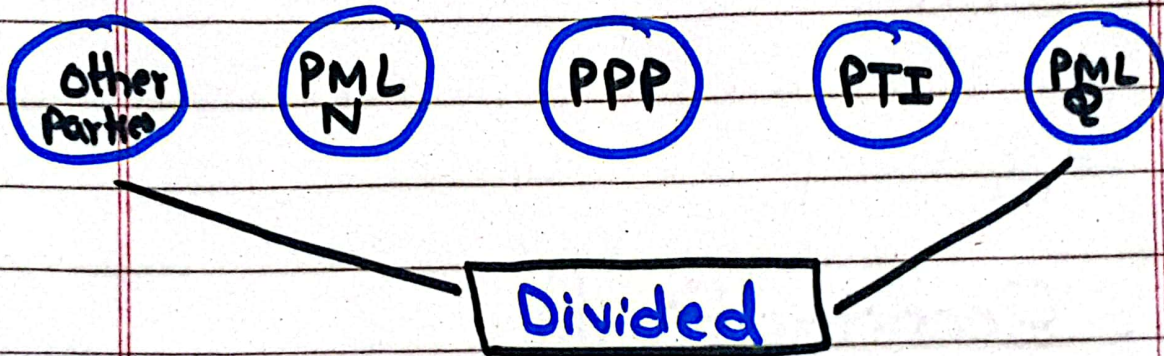 other
Parties
PML
N
PPP
PTI
PML
Q
Divided